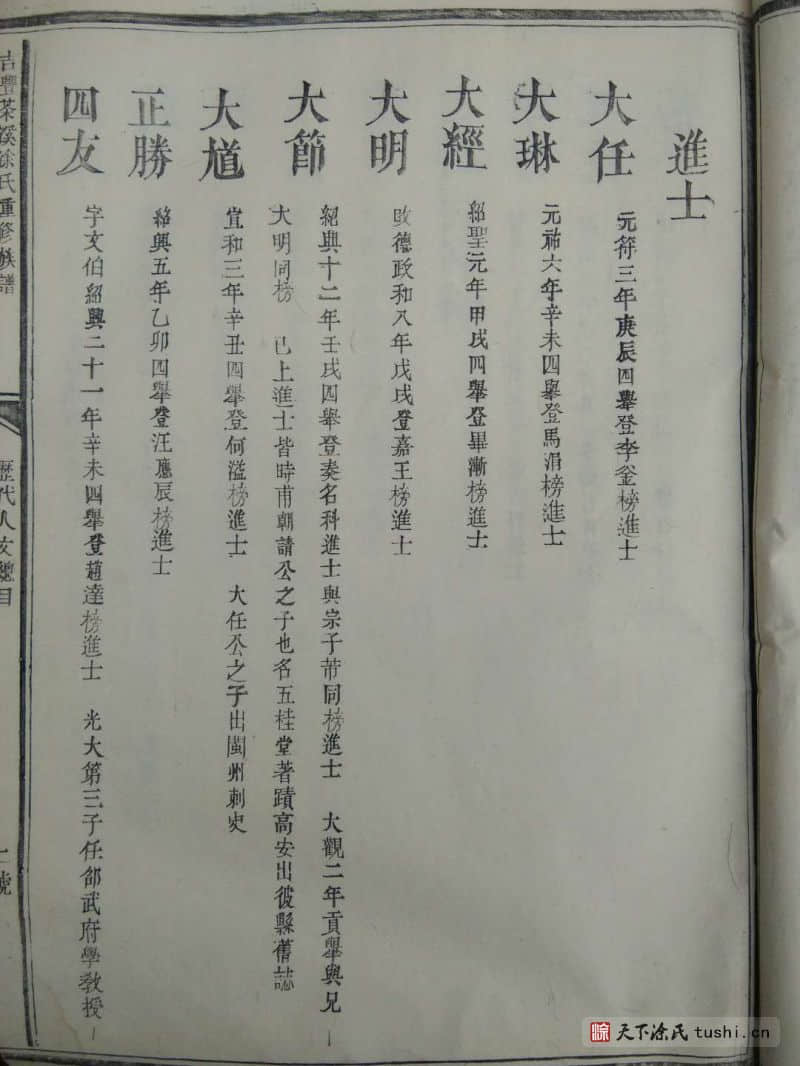 進士
大任 元符三年庚辰四舉登李釜榜進士
大琳 元祐六年辛未四舉登馬涓榜進士
大經 紹聖元年甲戌四舉登畢漸榜進士
大明 政和八年戊戌登嘉王榜進士
大節 紹興十二年壬戌四舉登奏名科進士與宗子芾同榜進士 大觀二年貢舉與兄
大明同榜 已上進士皆時甫朝請公之子也名五桂堂著蹟高安出彼縣舊誌
大馗 宣和三年辛丑四舉登何溢榜進士 大任公之子出閩州刺史
正勝 紹興五年乙卯四舉登汪應辰榜進士
四友 字文伯紹興二十一年辛未四舉登趙逵榜進士 光大第三子任邵武府學教授
吉豐茶溪涂氏重修族譜
歷代人文總目
號
天下涂氏 tushi.cn